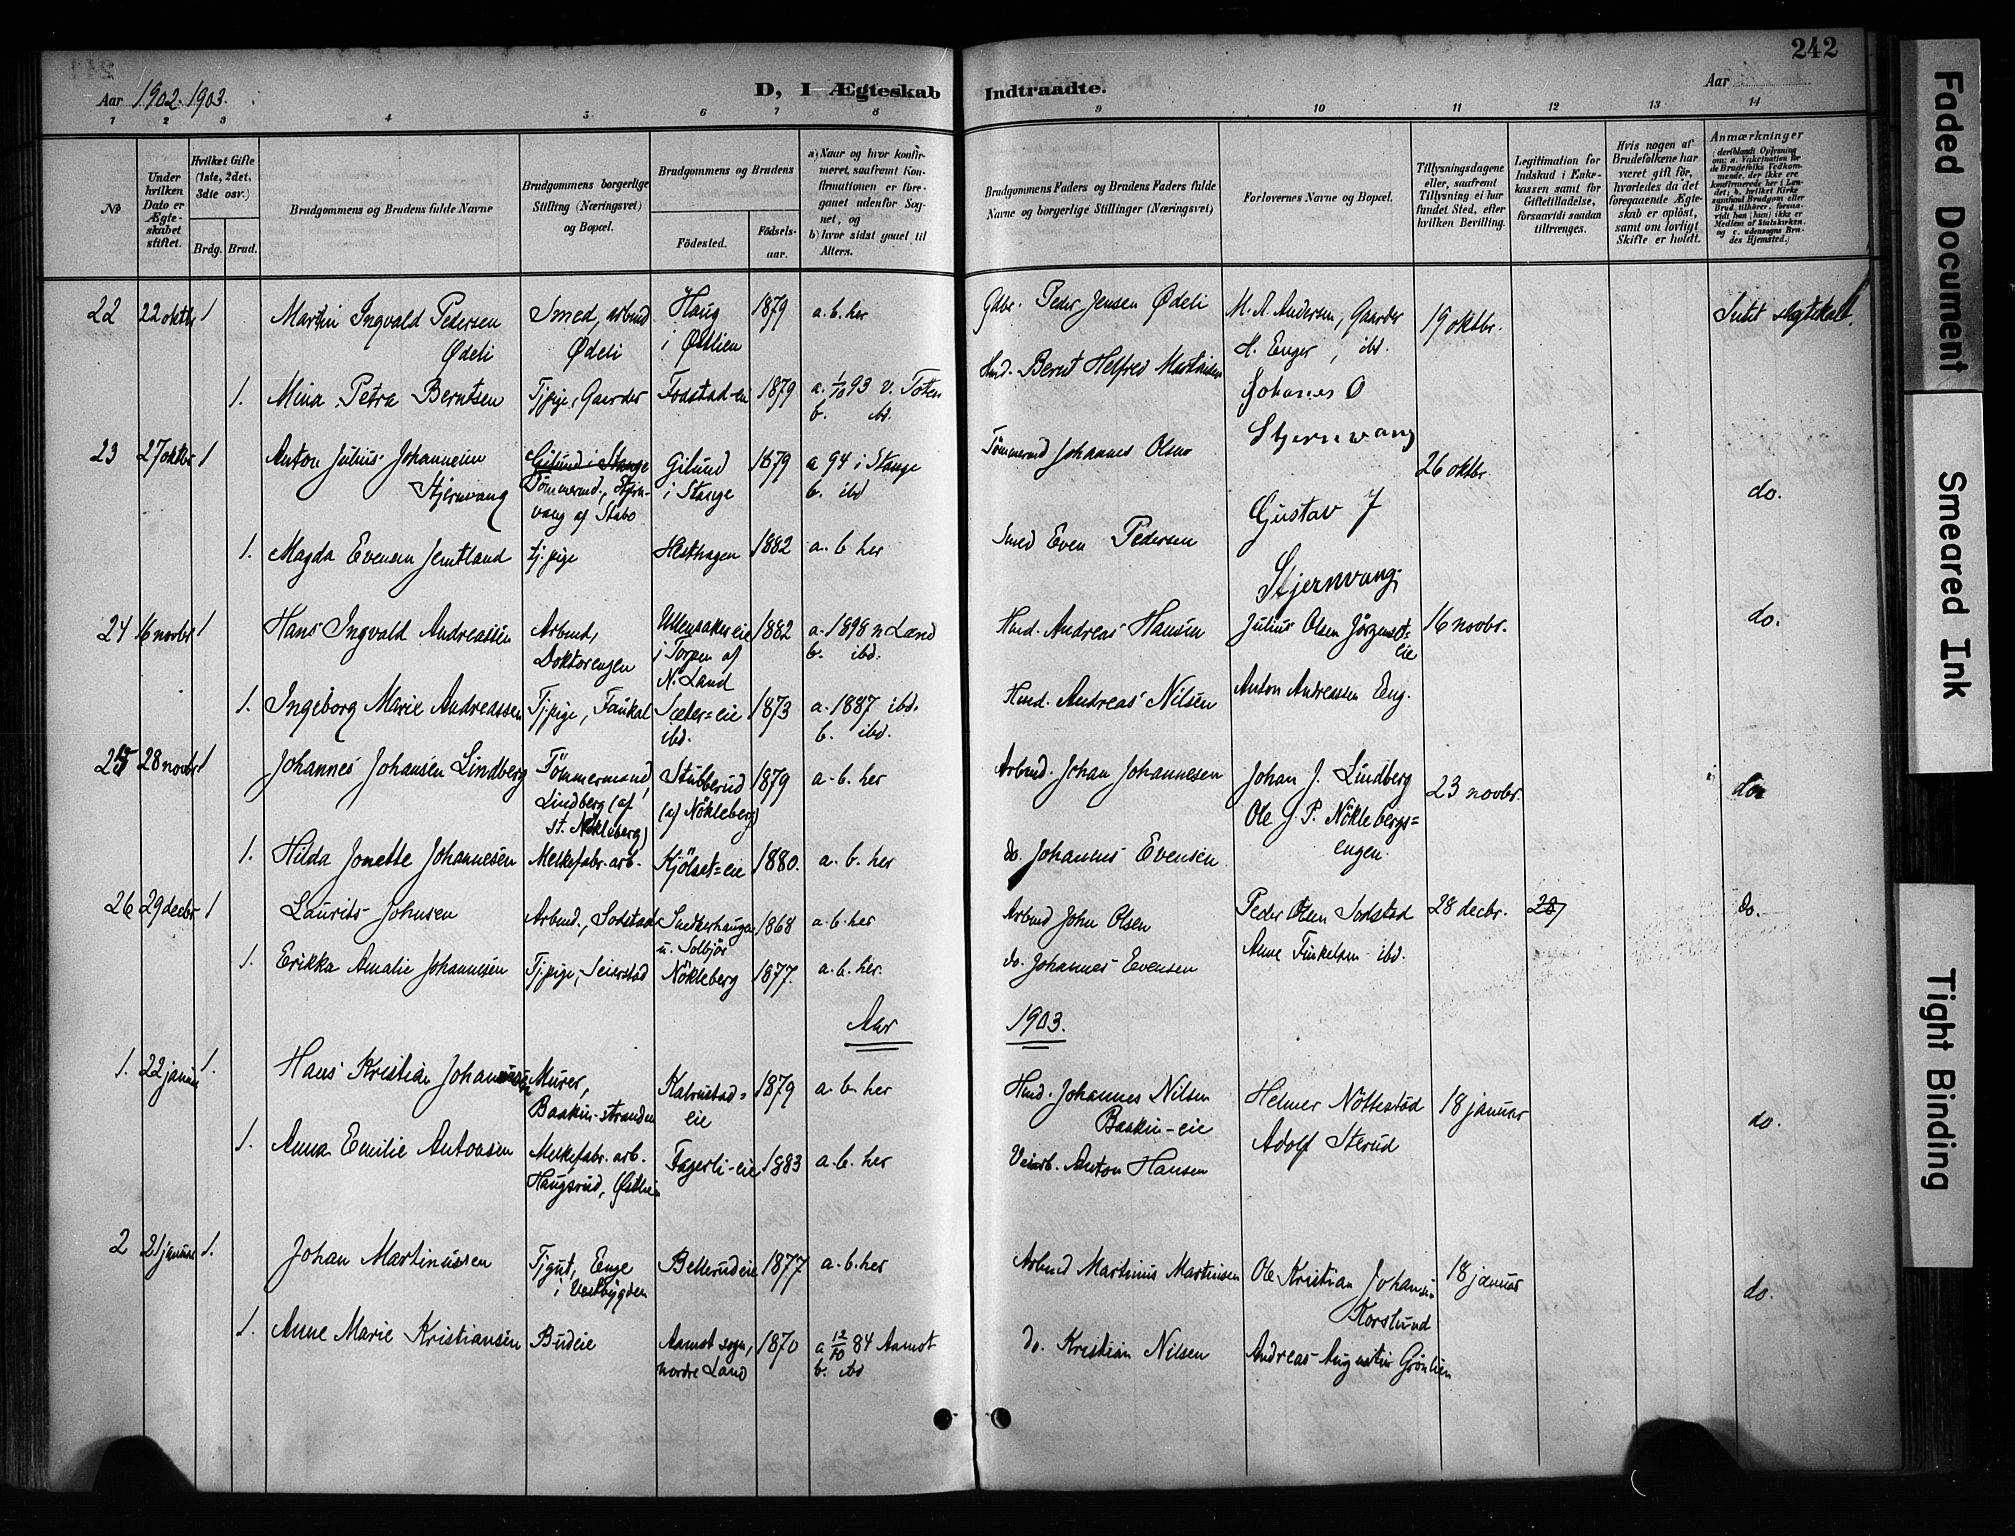 242
Aar 1902. 1903.
D, I Ægteskab Indtraadte.
Aar
1 2 3 4 5 6 7 8 9 10 11 12 13 14
No
Under hvilken Dato er Ægteskabet stiftet.
Hvilket Gifte (1ste, 2det, 3die osv.)
Brdg. Brud.
Brudgommens og Brudens fulde Navne
Brudgommens borgerlige Stilling (Næringsvei) og Bopæl.
Brudgommens og Brudens
Födested.
Födsels-aar.
a) Naar og hvor konfirmeret, saafremt Konfirmationen er foregaaet udenfor Sognet, og
b) hvor sidst gaaet til Alters.
Brudgommens Faders og Brudens Faders fulde Navne og borgerlige Stillinger (Næringsvei)
Forlovernes Navne og Bopæl.
Tillysningsdagene eller, saafremt Tillysning ei har fundet Sted, efter hvilken Bevilling.
Legitimation for Indskud i Enkekassen samt for Giftetilladelse, forsaavidt saadan tiltrænges.
Hvis nogen af Brudefolkene har været gift för, hvorledes da det foregaaende Ægteskab er oplöst, samt om lovligt Skifte er holdt.
Anmærkninger
22 22 oktbr 1 Martin Ingvald Pedersen Ødeli Smed, arbmd Ødeli Haug i Østlien 1879 a. b. her Gdbr. Peder Jensen Ødeli M. A. Andersen, Gaarder H. Enger, ibd. 19 oktbr. Intet slegtskab.
1. Mina Petra Berntsen Tjpige, Gaarder Fodstad-eie 1879 a. 1/10 93 V. Toten b. ibd. Hmd. Bernt Helfred Martinsen
23 27 oktbr 1 Anton Julius Johannesen Stjernvang Gilund i Stange Tömmermd., Stjernvang af Stabo Gilund i Stange 1879 a 94 i Stange b. ibd Tömmermd Johannes Olsen Johanes O Stjernvang 26 oktbr. do.
1. Magda Evensen Jemtland tj. pige Hesthagen 1882 a. b her Smed Even Pedersen Gustav J Stjernvang
24 16 novbr 1 Hans Ingvald Andreassen Arbmd, Doktorengen Ullensaker eie i Torpen af N. Land 1882 a. 1898 n Land b. ibd. Hmd. Andreas Hansen Julius Olsen Jörgenst=eie 16 novbr. do.
1. Ingeborg Marie Andreassen Tj.pige, Faukal Sæter=eie ibd. 1873 a. 1887 ibd. b. ibd. Hmd. Andreas Nilsen Anton Andreassen Eng.
25 28 novbr 1 Johannes Johansen Lindberg Tömmermand, Lindberg (af St. Nökleberg) Stubberud (af Nökleberg) 1879 a. b. her Arbmd. Johan Johannesen Johan J. Lindberg 23 novbr. do
1. Hilda Jonette Johannesen Melkefabr. arb. Kjölset=eie 1880. a. b. her do. Johannes Evensen Ole J. P. Nöklebergs=engen.
26 29 decbr 1 Laurits Johnsen Arbmd., Sodstad Snekerhaugen u. Solbjör 1868 a. b. her Arbmd John Olsen Peder Olsen Sodstad 28 decbr. 28 Do.
1. Erikka Amalie Johannesen Tj.pige, Seierstad Nökleberg 1877. a. b. her. do. Johannes Evensen Anne Finkelsen ibd.
Aar 1903.
1. 22 januar 1. Hans Kristian Johannesen Murer, Baakin-stranden Kalrustad=eie 1879 a. b. her Hmd. Johannes Nilsen Baakin-eie Helmer Nöttestad 18 januar do.
1. Anna Emilie Antonsen Melkefabr. arb. Haugsrud, Østlien Fagerli-eie 1883 a. b. her Veiarb. Anton Hansen Adolf Sterud
2 21 januar 1. Johan Martinussen Tjgut, Enge i Vestbygden Bellerud eie 1877 a. b. her Arbmd Martinus Martinsen Ole Kristian Johansen Korslund 18 januar do.
1. Anne Marie Kristiansen Budeie Aamot sogn, nordre Land 1870 a 12/10 84 Aamot b. ibd do. Kristian Nilsen Andreas Augustin Grönlien
Faded Document
Smeared Ink
Tight Binding